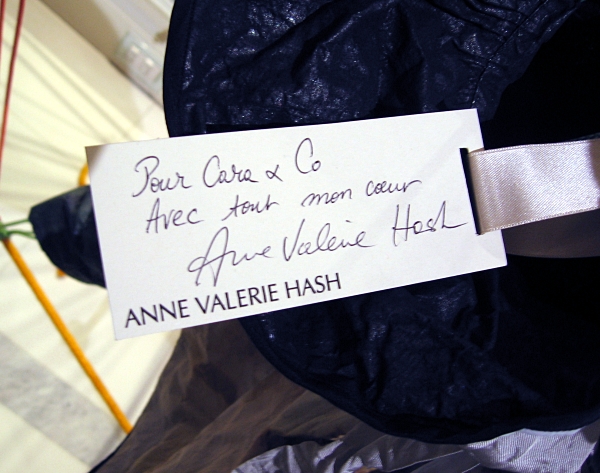 Pour Cara & Co
Avec tout mon cœur
Anne Valérie Hash
ANNE VALERIE HASH